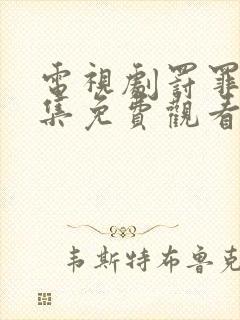 電視劇罰罪
集免費觀看
韦斯特布鲁克